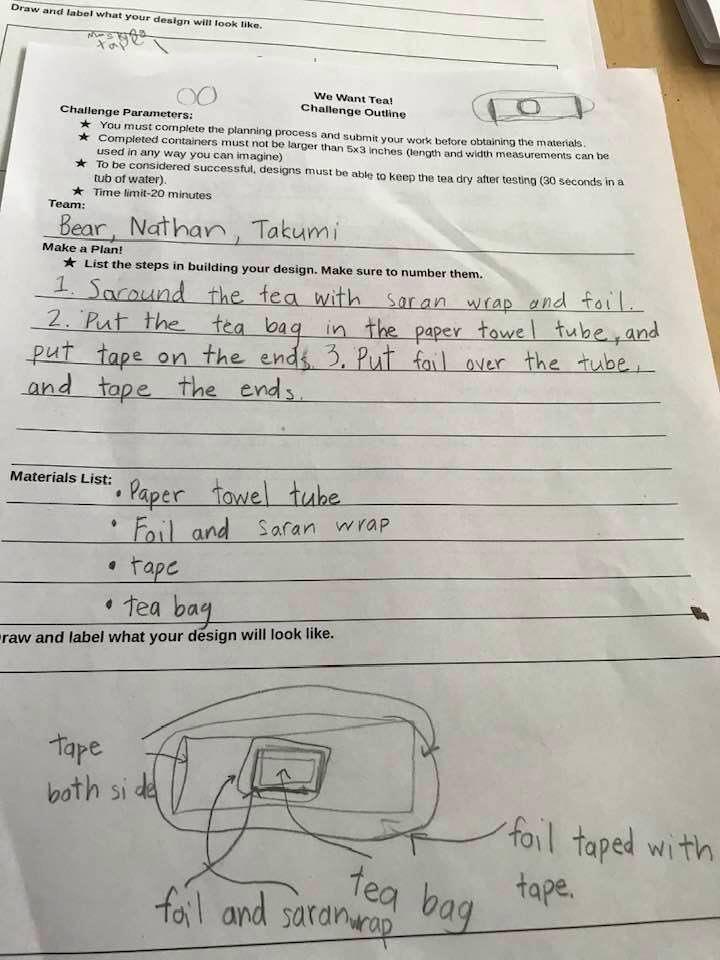 Draw and label what your design will look like.
tape
We Want Tea!
Challenge Outline
Challenge Parameters:
★ You must complete the planning process and submit your work before obtaining the materials.
★ Completed containers must not be larger than 5x3 inches (length and width measurements can be
used in any way you can imagine)
★ To be considered successful, designs must be able to keep the tea dry after testing (30 seconds in a
tub of water).
★ Time limit-20 minutes
Team:
Bear, Nathan, Takumi
Make a Plan!
★ List the steps in building your design. Make sure to number them.
1. Saround the tea with saran wrap and foil.
2. Put the tea bag in the paper towel tube, and
put tape on the ends. 3. Put foil over the tube,
and tape the ends.
Materials List:
• Paper towel tube
• Foil and saran wrap
• tape
• tea bag
raw and label what your design will look like.
tape
both side
foil taped with
tape.
tea bag
foil and saran wrap